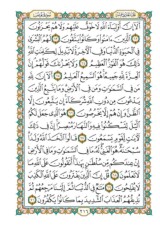 أَلَا إِنَّ أَوْلِيَاءَ اللَّهِ لَا خَوْفٌ عَلَيْهِمْ وَلَا هُمْ يَحْزَنُونَ
الَّذِينَ آمَنُوا وَكَانُوا يَتَّقُونَ لَهُمُ الْبُشْرَىٰ
فِي الْحَيَاةِ الدُّنْيَا وَفِي الْآخِرَةِ لَا تَبْدِيلَ لِكَلِمَاتِ اللَّهِ
ذَٰلِكَ هُوَ الْفَوْزُ الْعَظِيمُ وَلَا يَحْزُنكَ قَوْلُهُمْ إِنَّ
الْعِزَّةَ لِلَّهِ جَمِيعًا هُوَ السَّمِيعُ الْعَلِيمُ أَلَا إِنَّ لِلَّهِ
مَن فِي السَّمَاوَاتِ وَمَن فِي الْأَرْضِ وَمَا يَتَّبِعُ الَّذِينَ
يَدْعُونَ مِن دُونِ اللَّهِ شُرَكَاءَ إِن يَتَّبِعُونَ إِلَّا الظَّنَّ وَإِنْ
هُمْ إِلَّا يَخْرُصُونَ هُوَ الَّذِي جَعَلَ لَكُمُ
اللَّيْلَ لِتَسْكُنُوا فِيهِ وَالنَّهَارَ مُبْصِرًا إِنَّ فِي ذَٰلِكَ
لَآيَاتٍ لِّقَوْمٍ يَسْمَعُونَ قَالُوا اتَّخَذَ اللَّهُ وَلَدًا
سُبْحَانَهُ هُوَ الْغَنِيُّ لَهُ مَا فِي السَّمَاوَاتِ وَمَا فِي الْأَرْضِ
إِنْ عِندَكُم مِّن سُلْطَانٍ بِهَٰذَا أَتَقُولُونَ عَلَى اللَّهِ مَا
لَا تَعْلَمُونَ قُلْ إِنَّ الَّذِينَ يَفْتَرُونَ عَلَى اللَّهِ الْكَذِبَ
لَا يُفْلِحُونَ مَتَاعٌ فِي الدُّنْيَا ثُمَّ إِلَيْنَا مَرْجِعُهُمْ ثُمَّ
نُذِيقُهُمُ الْعَذَابَ الشَّدِيدَ بِمَا كَانُوا يَكْفُرُونَ
٢١٦